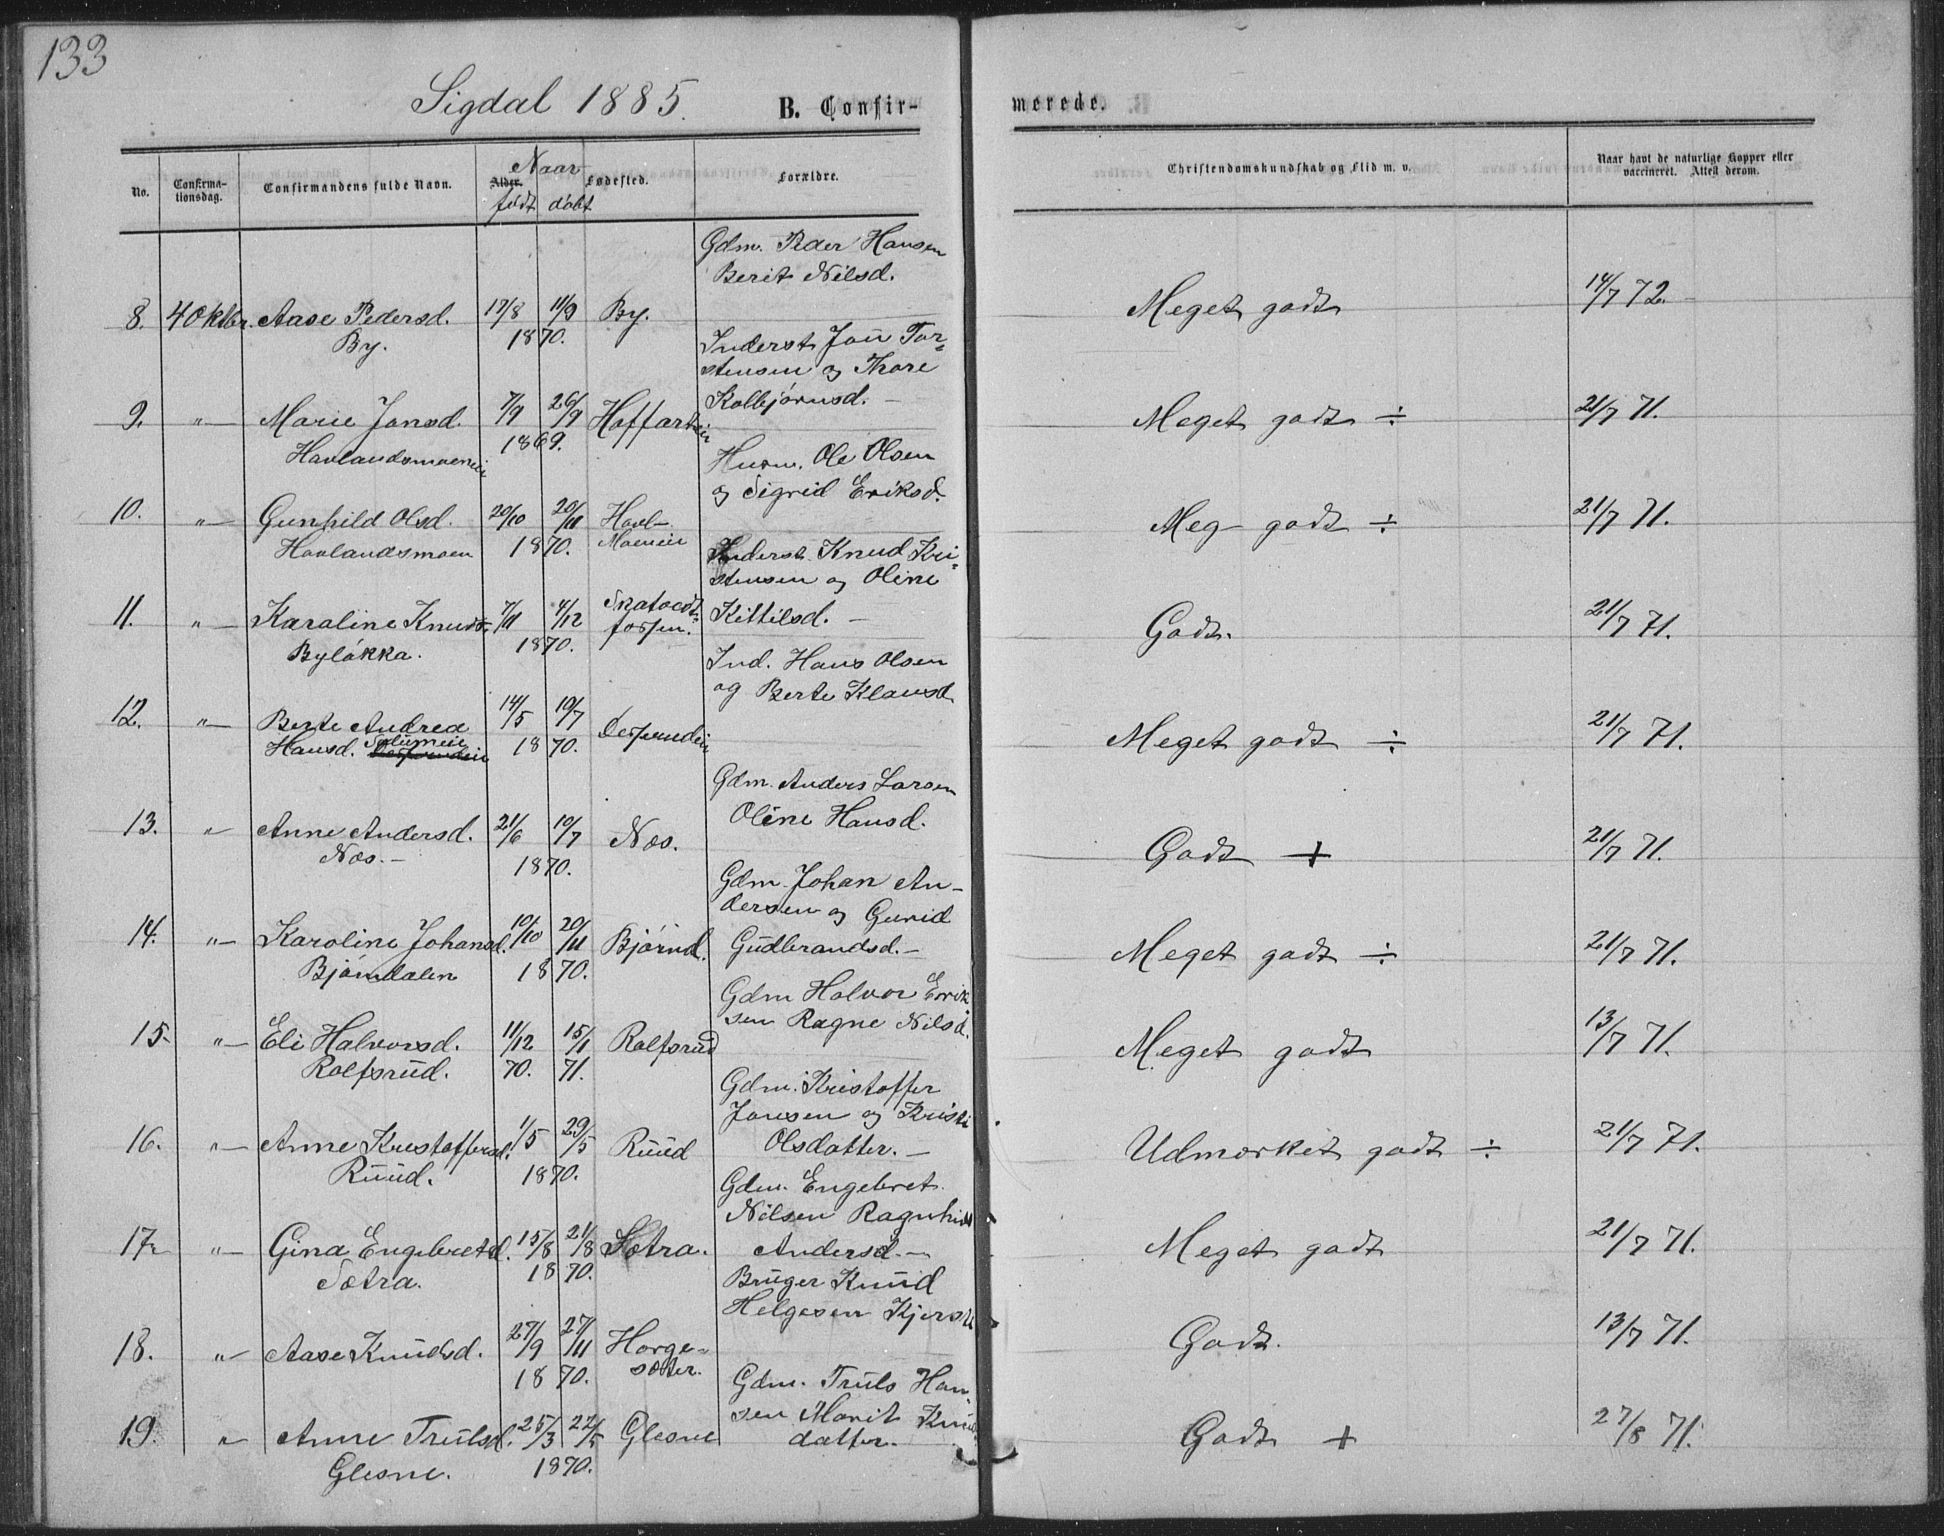 133
Sigdal 1885.
B. Confir-
merede.
No.
Confirma-
tionsdag.
Confirmandens fulde Navn.
Naar
Alder.
født døbt
Fødested.
Forældre.
Christendomskundskab og Flid m. v.
Naar havt de naturlige Kopper eller
vaccineret. Attest derom.
Gdm. Peder Hansen
Berit Nilsd.
8. 4 Oktbr. Aase Pedersd. 17/8 11/9 By. Meget godt 14/7 72.
By. 1870.
Inderst Jon Tor-
stensen og Thore
9. "— Marie Jonsd. 7/9 26/9 Hoffart Kolbjørnsd. — Meget godt ÷ 21/7 71.
Havlandsmoeneie 1869.
Husm. Ole Olsen
og Sigrid Eriksd.
10. "— Gunhild Olsd. 20/10 20/11 Havl- Meg- godt ÷ 21/7 71.
Havlandsmoen 1870. Moeneie
Inderst Knud Kri-
stensen og Oline
11. "— Karoline Knudsd. 7/11 4/12 Kittilsd. — Godt. 21/7 71.
Byløkka. 1870. fossen.
Ind. Hans Olsen
og Berte Klausd.
12. "— Berte Andrea 14/5 10/7 Meget godt ÷ 21/7 71.
Hansd. 1870.
Gdm. Anders Larsen
13. " Anne Andersd. 21/6 10/7 Næs. Oline Hansd. Godt + 21/7 71.
Næs. — 1870.
Gdm. Johan An-
dersen og Gunid
14. "— Karoline Johansd. 10/10 20/11 Bjørnd. Gudbrandsd. — Meget godt ÷ 21/7 71.
Bjørndalen 1870.
Gdm Halvor Erik
sen Ragne Nilsd.
15. "— Eli Halvorsd. 11/12 15/1 Rolfsrud Meget godt 13/7 71.
Rolfsrud. 70. 71.
Gdm. Kristoffer
Jonsen og Kristi
16. "— Anne Kristoffersd. 1/5 29/5 Ruud Olsdatter. — Udmærket godt ÷ 21/7 71.
Ruud. 1870.
Gdm. Engebret
Nilsen Ragnhild
17. "— Gina Engebretsd. 15/8 21/8 Sætra. Andersd. — Meget godt 21/7 71.
Sætra. 1870.
Bruger Knud
Helgesen Kjersti
18. "— Aase Knudsd. 27/9 27/11 Horge- Godt. 13/7 71.
1870. sæter.
Gdm. Truls Han-
sen Marit Knuds
19. " Anne Trulsd. 25/3 22/5 Glesne datter. — Godt + 27/8 71.
Glesne. 1870.